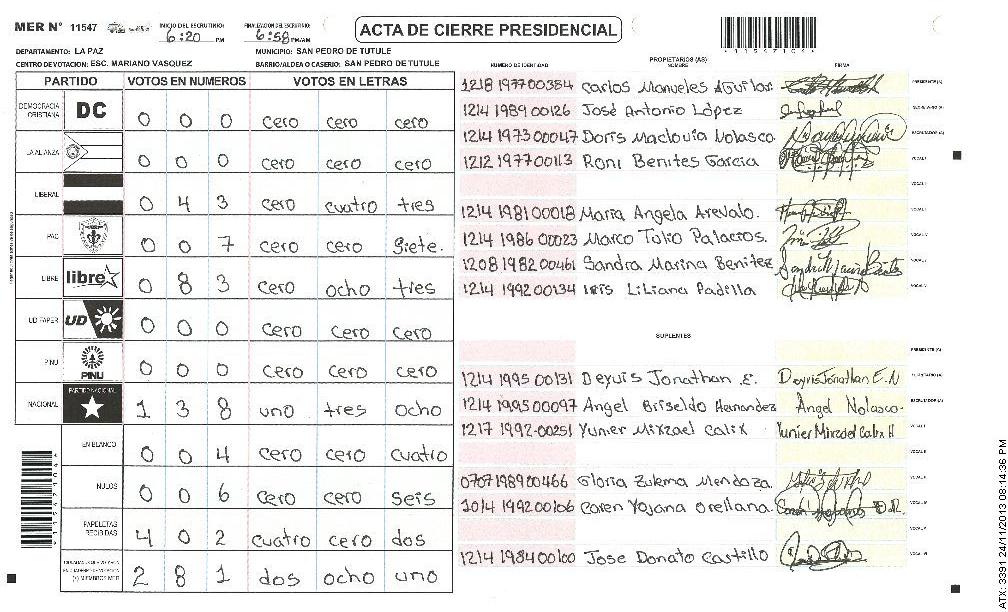 MER N° 11547 INICIO DEL ESCRUTINIO: 6:20 PM FINALIZACION DEL ESCRUTINIO: 6:58 PM/AM
ACTA DE CIERRE PRESIDENCIAL
DEPARTAMENTO: LA PAZ MUNICIPIO: SAN PEDRO DE TUTULE
CENTRO DE VOTACION: ESC. MARIANO VASQUEZ BARRIO/ALDEA O CASERIO: SAN PEDRO DE TUTULE
PARTIDO VOTOS EN NUMEROS VOTOS EN LETRAS
DEMOCRACIA CRISTIANA DC 0 0 0 cero cero cero
LA ALIANZA 0 0 0 cero cero cero
LIBERAL 0 4 3 cero cuatro tres
PAC 0 0 7 cero cero siete.
LIBRE libre 0 8 3 cero ocho tres
UD FAPER UD 0 0 0 cero cero cero
PINU PINU 0 0 0 cero cero cero
NACIONAL PARTIDO NACIONAL 1 3 8 uno tres ocho
EN BLANCO 0 0 4 cero cero cuatro
NULOS 0 0 6 cero cero seis
PAPELETAS RECIBIDAS 4 0 2 cuatro cero dos
2 8 1 dos ocho uno
PROPIETARIOS (AS)
NUMERO DE IDENTIDAD NOMBRE FIRMA
1218 1977 00384 Carlos Manueles Aguilar PRESIDENTE (A)
1214 1989 00126 José Antonio López SECRETARIO (A)
1214 1973 00047 Doris Maclovia Nolasco ESCRUTADOR (A)
1212 1977 00113 Roni Benites Garcia VOCAL I
VOCAL II
1214 1981 00018 Maria Angela Arevalo.
1214 1986 00023 Marco Tolio Palacios.
1208 1982 00461 Sandra Marina Benitez
1214 1992 00134 Iris Liliana Padilla
SUPLENTES
PRESIDENTE (A)
1214 1995 00131 Deyvis Jonathan E. Deyvis Jonathan E.N SECRETARIO (A)
1214 1995 00097 Angel Griseldo Hernandez Angel Nolasco. ESCRUTADOR (A)
1217 1992-00251 Yunier Mizael Calix Yunier Mizael Calix H VOCAL I
VOCAL II
0707 1989 00466 Gloria Zulema Mendoza.
1014 1992 00106 Caren Yojana Orellana.
1214 1984 00100 Jose Donato Castillo
ATX: 3391 24/11/2013 08:14:36 PM